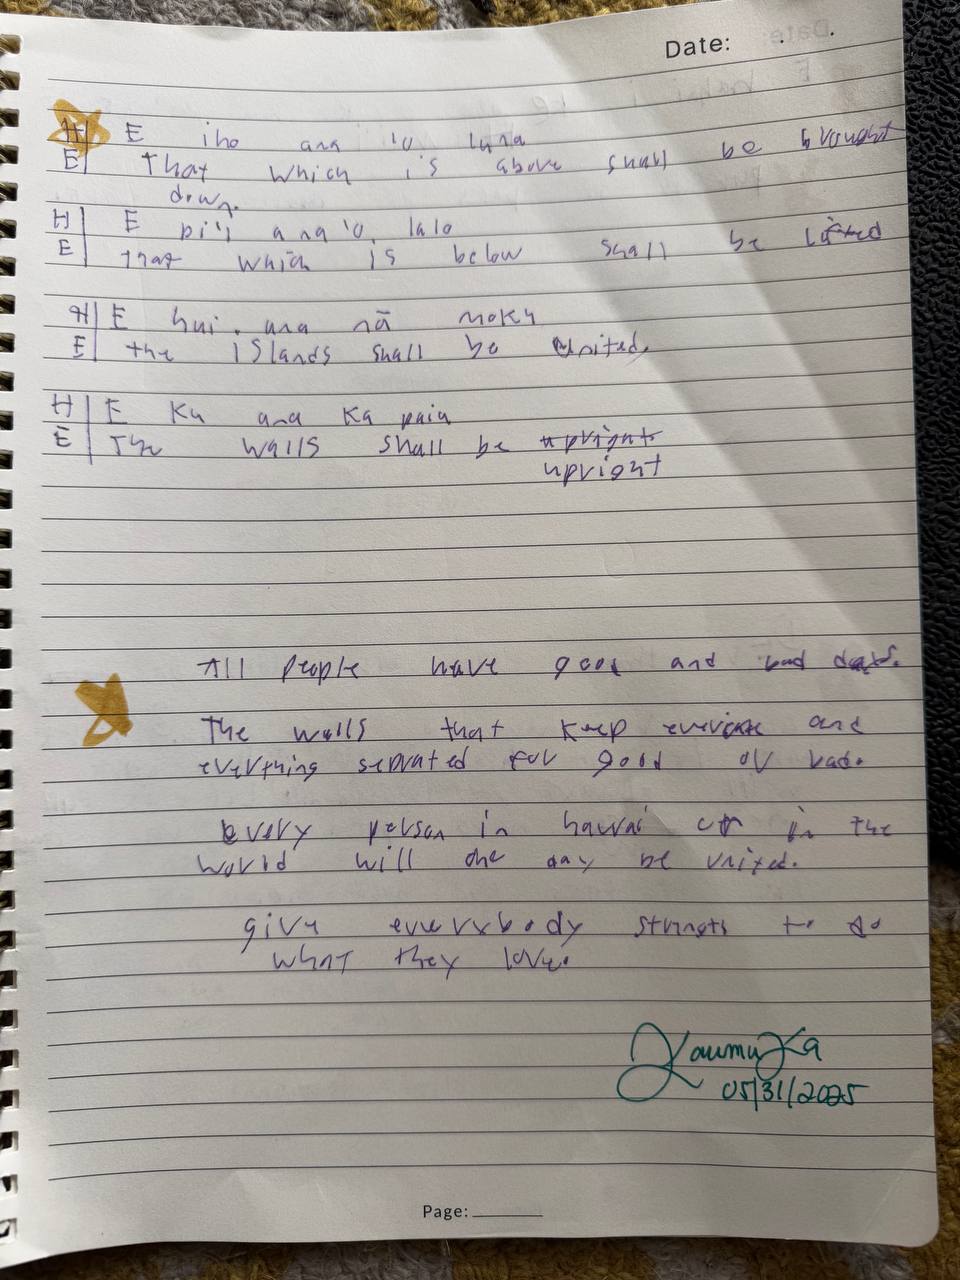 Date: . .
H E iho ana 'o luna
E That which is above shall be brought
down.
H E pi'i ana 'o lalo
E that which is below shall be lifted
H E hui ana nā moku
E the islands shall be united
H E Ku ana ka paia
E The walls shall be upright
upright
All people have good and bad days.
The walls that keep everyone and
everything seprated for good or bad.
every person in hawai or in the
world will one day be united.
give everybody to do
what they love.
05/31/2025
Page: